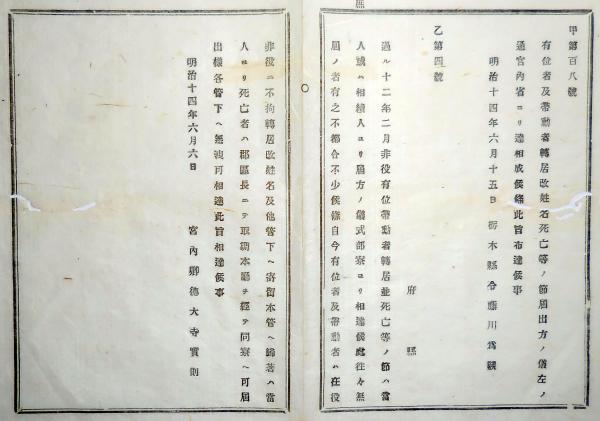 甲第百八號
有位者及帶勳者轉居改姓名死亡等ノ節屆出方ノ儀左ノ
通宮內省ヨリ達相成候條此旨布達候事
明治十四年六月十五日　栃木縣令藤川爲親
乙第四號
府縣
過ル十二年二月非役有位帶勳者轉居並死亡等ノ節ハ當
人或ハ相續人ヨリ屆方ノ儀式部寮ヨリ相達候處往々無
屆ノ者有之不都合不少候條自今有位者及帶勳者ハ在役
非役ニ不拘轉居改姓名及他管下ヘ寄留本管ヘ歸著ハ當
人ヨリ死亡者ハ郡區長ニテ取調本廳ヲ經テ同寮ヘ可屆
出樣各管下ヘ無洩可相達此旨相達候事
明治十四年六月六日　宮內卿德大寺實則